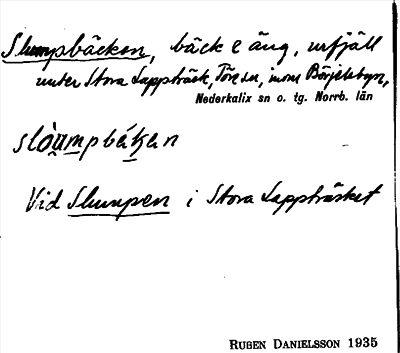 Slumpbäcken, bäck o äng, urfjäll
under Stora Lappträsk, Töre sn, inom Börjelsbyn,
Nederkalix sn o. tg. Norrb. län
slòumpbäḱan
Vid Slumpen i Stora Lappträsket
RUBEN DANIELSSON 1935